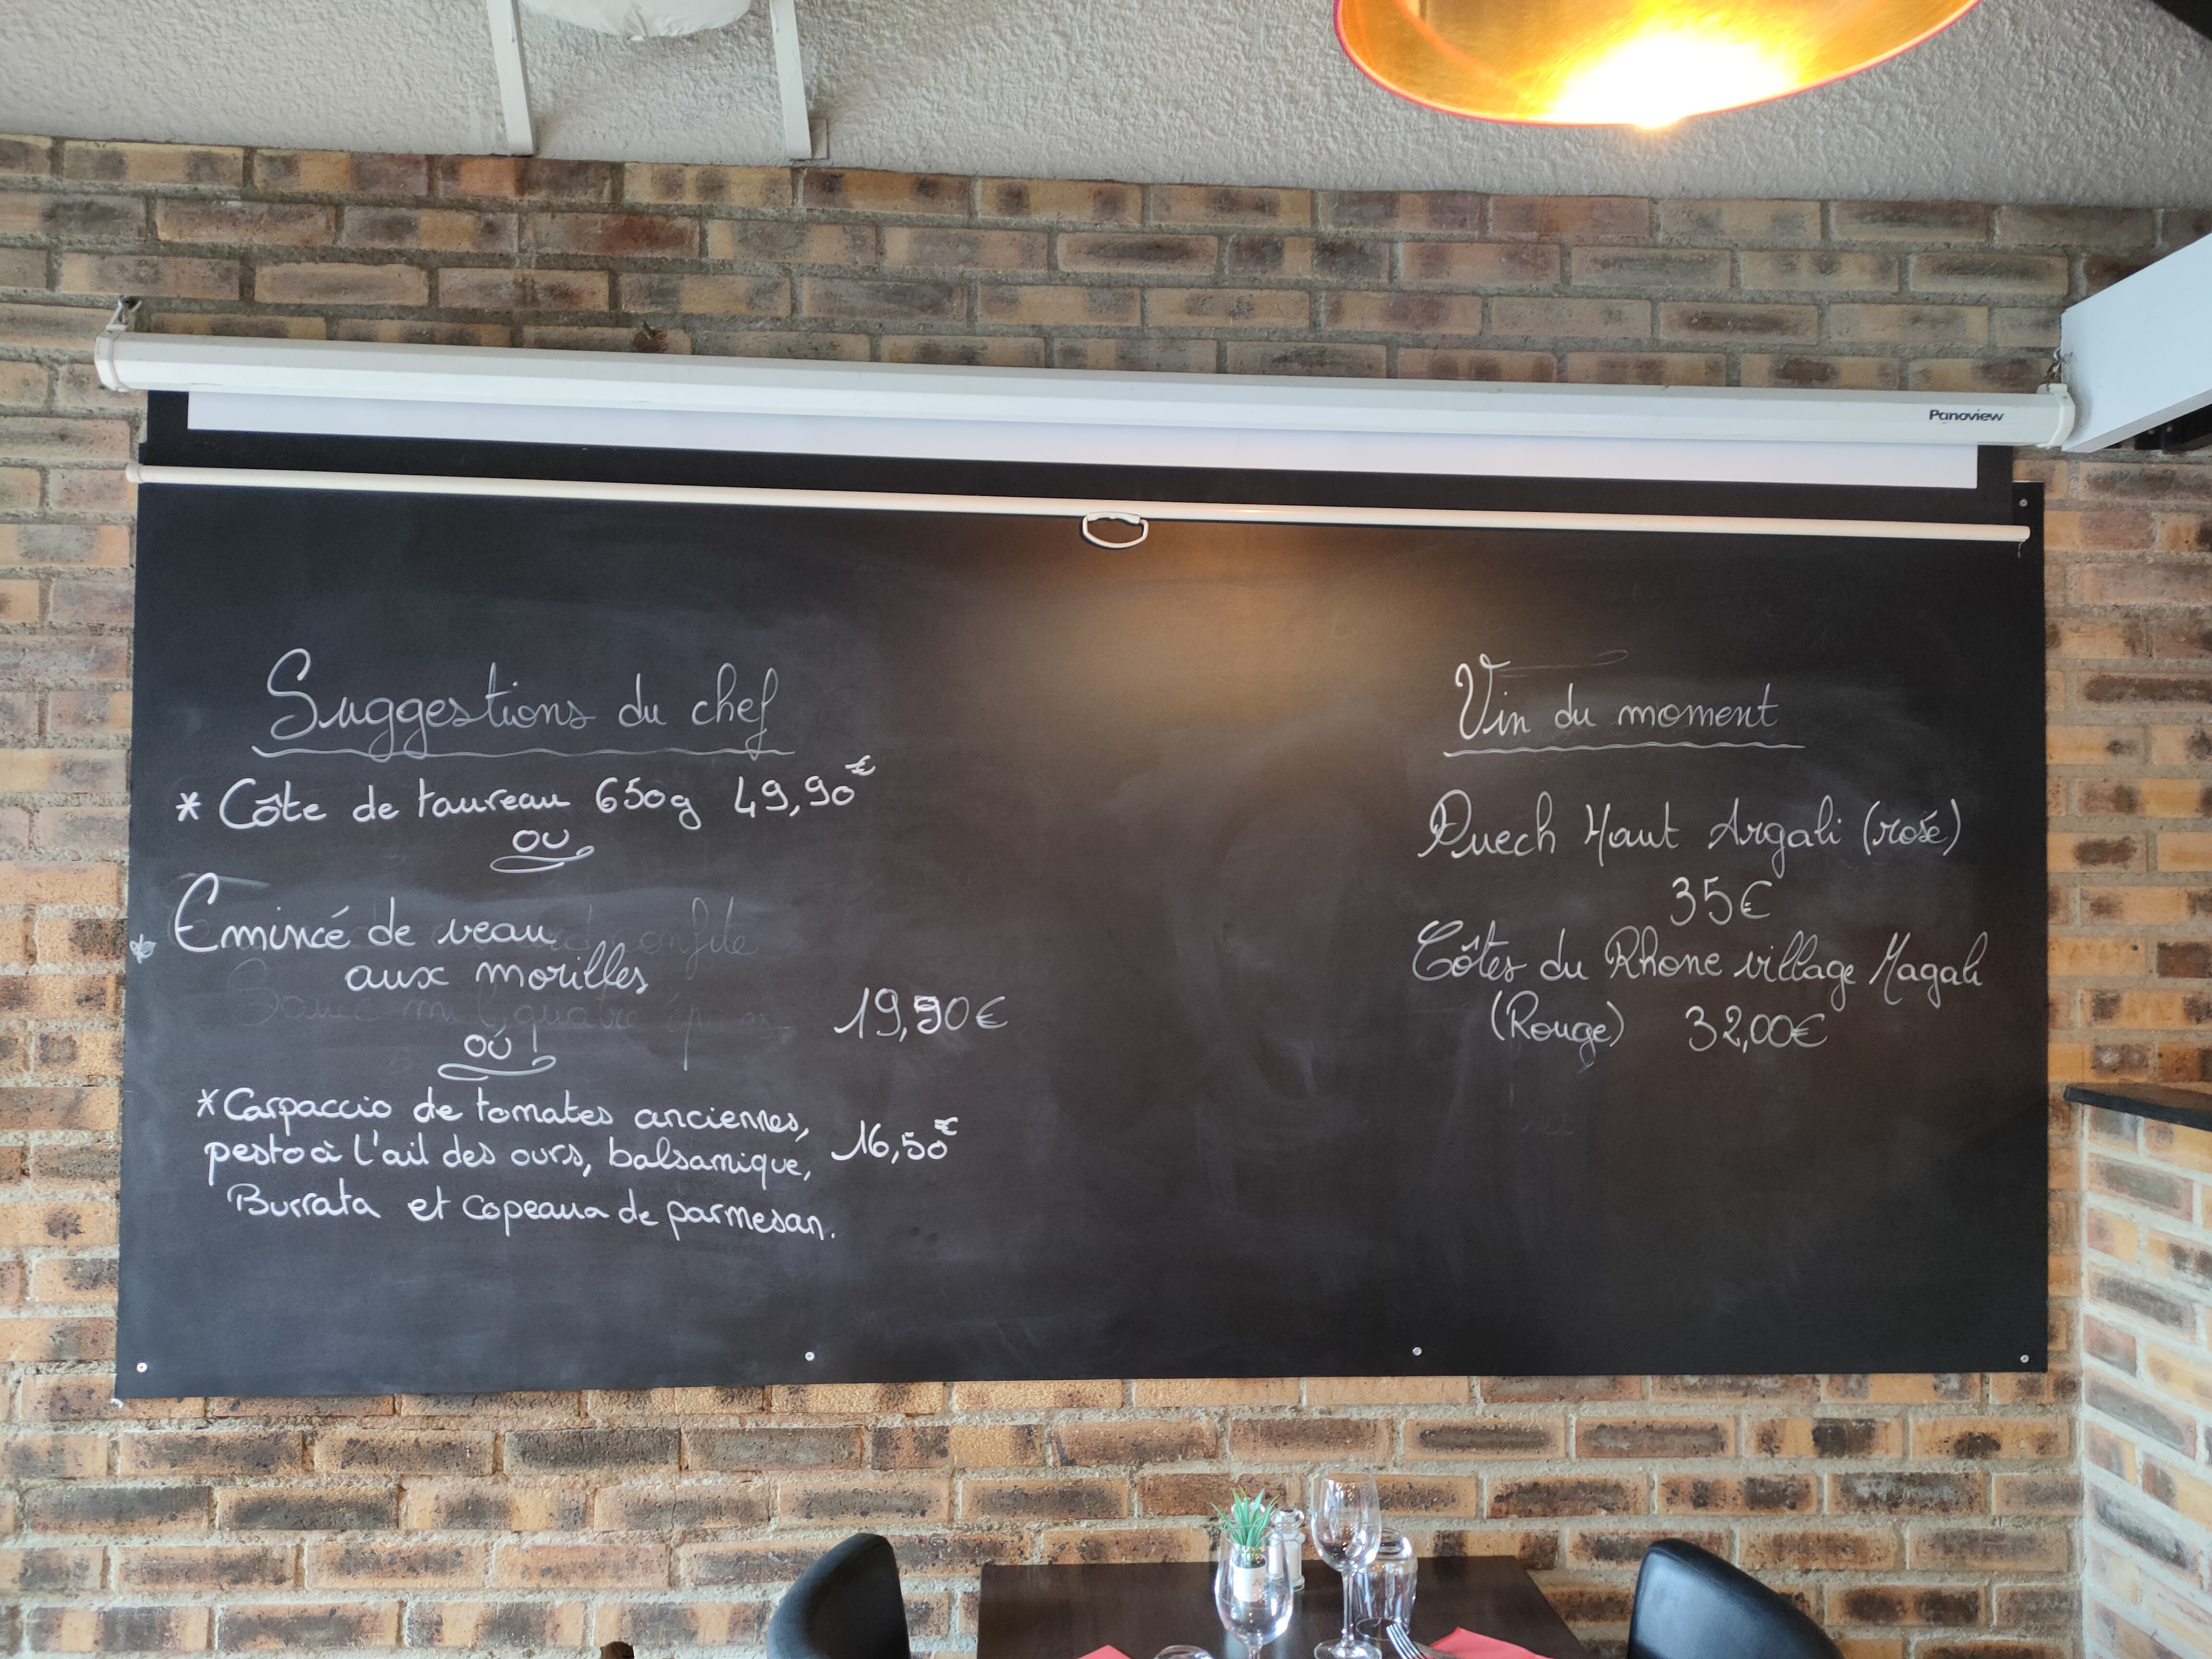 Panoview
Suggestions du chef
* Côte de taureau 650g 49,90€
ou
* Emincé de veau
aux morilles
19,90€
oú !
* Carpaccio de tomates anciennes,
pesto à l'ail des ours, balsamique, 16,50€
Burrata et copeaux de parmesan.
Vin du moment
Puech Haut Argali (rosé)
35€
Côtes du Rhone village Magali
(Rouge) 32,00€